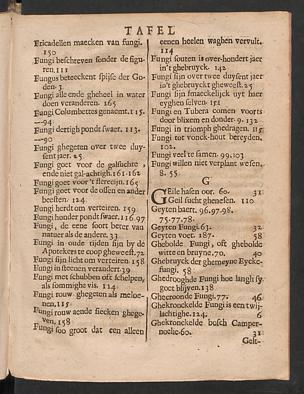 TAFEL
Fricadellen maecken van fungi.
150
Fungi beschreven sonder de figuren. 111
Fungus beteeckent spijse der Goden. 3
Fungi alle ende gheheel in water
doen veranderen. 165
Fungi Colombettes genaemt. 115.
—94
Fungi dertigh pondt swaer. 113.
—90
Fungi ghegeten over twee duysent jaer. 25.
Fungi goet voor de galsuchte
ende niet gal-achtigh. 161-162
Fungi goet voor 't flerecijn. 165
Fungi goet voor de ossen en ander
beesten. 124
Fungi herdt om verteiren. 159
Fungi honder pondt swaer. 116.97
Fungi, de eene soort beter van
natuer als de andere. 33
Fungi in oude tijden sijn by de
Apotekers te coop gheweest. 72
Fungi sijn licht om verteiren 158
Fungi in steenen verandert. 39
Fungi met schubben oft schelpen,
als sommighe vis. 114
Fungi rouw ghegeten als meloenen. 115.
Fungi rouw aende siecken ghegeven. 158
Fungi soo groot dat een alleen
eenen heelen waghen vervult.
114
Fungi souten is over-hondert jaer
in't ghebruyck. 142
Fungi sijn over twee duysent jaer
in't ghebruyckt gheweest. 25
Fungi sijn smaeckelijck uyt hier
eyghen selven. 151
Fungi en Tubera comen voorts
door blixem en donder. 9. 132
Fungi in triomph ghedragen. 115
Fungi tot vonck-hout bereyden.
102.
Fungi veel te samen. 99.103
Fungi willen niet verplant wesen.
8. 55
G
GEile hasen oor. 60. 31
Geil sucht ghenesen. 110
Geyten baert. 96.97.98.
75.77.78.
Geyten Fungi. 63. 32
Geyten voet. 187. 58
Ghebolde Fungi, oft ghebolde
witte en bruyne. 70. 40
Ghebruyck der ghemeyne Eyeke-
fungi. 58
Ghedrooghde Fungi hoe langh sy
goet blijven. 138
Gheeroonde Fungi. 77. 46
Ghekronckelde Fungi is een twijlachtighe. 124. 6
Ghekronckelde bosch Camper-
noelie. 60. 31
Gelt-